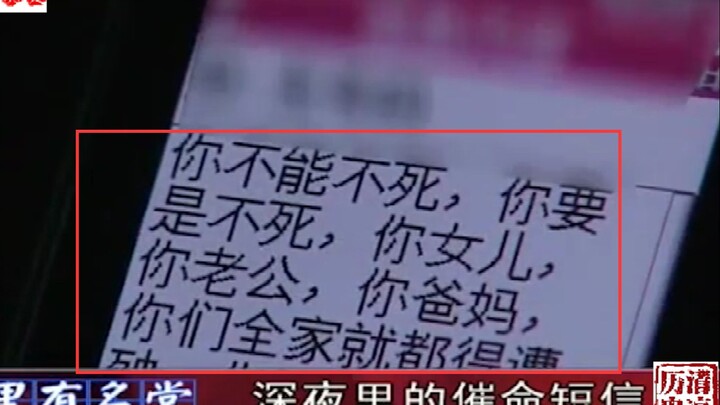 你不能不死，你要
是不死，你女儿，
你老公，你爸妈，
你们全家就都得遭
里有名堂
深夜里的催命短信